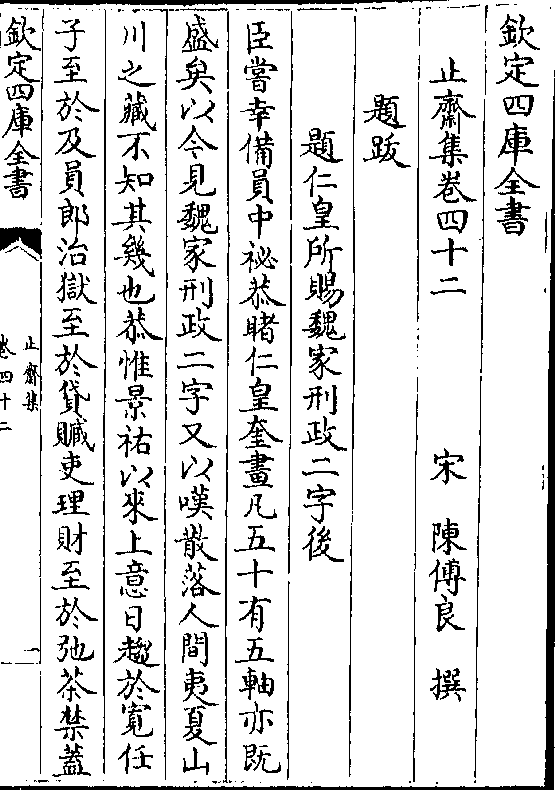 欽定四庫全書
止齋集卷四十二 宋 陳傅良 撰
題跋
題仁皇所賜魏家刑政二字後
臣嘗幸備員中祕恭睹仁皇奎畫凡五十有五軸亦既
盛矣以今見魏家刑政二字又以嘆散落人間夷夏山
川之藏不知其幾也恭惟景祐以來上意日趨於寛任
子至於及員郎治獄至於貸贓吏理財至於弛茶禁蓋
欽定四庫全書
止齋集
卷四十二
一